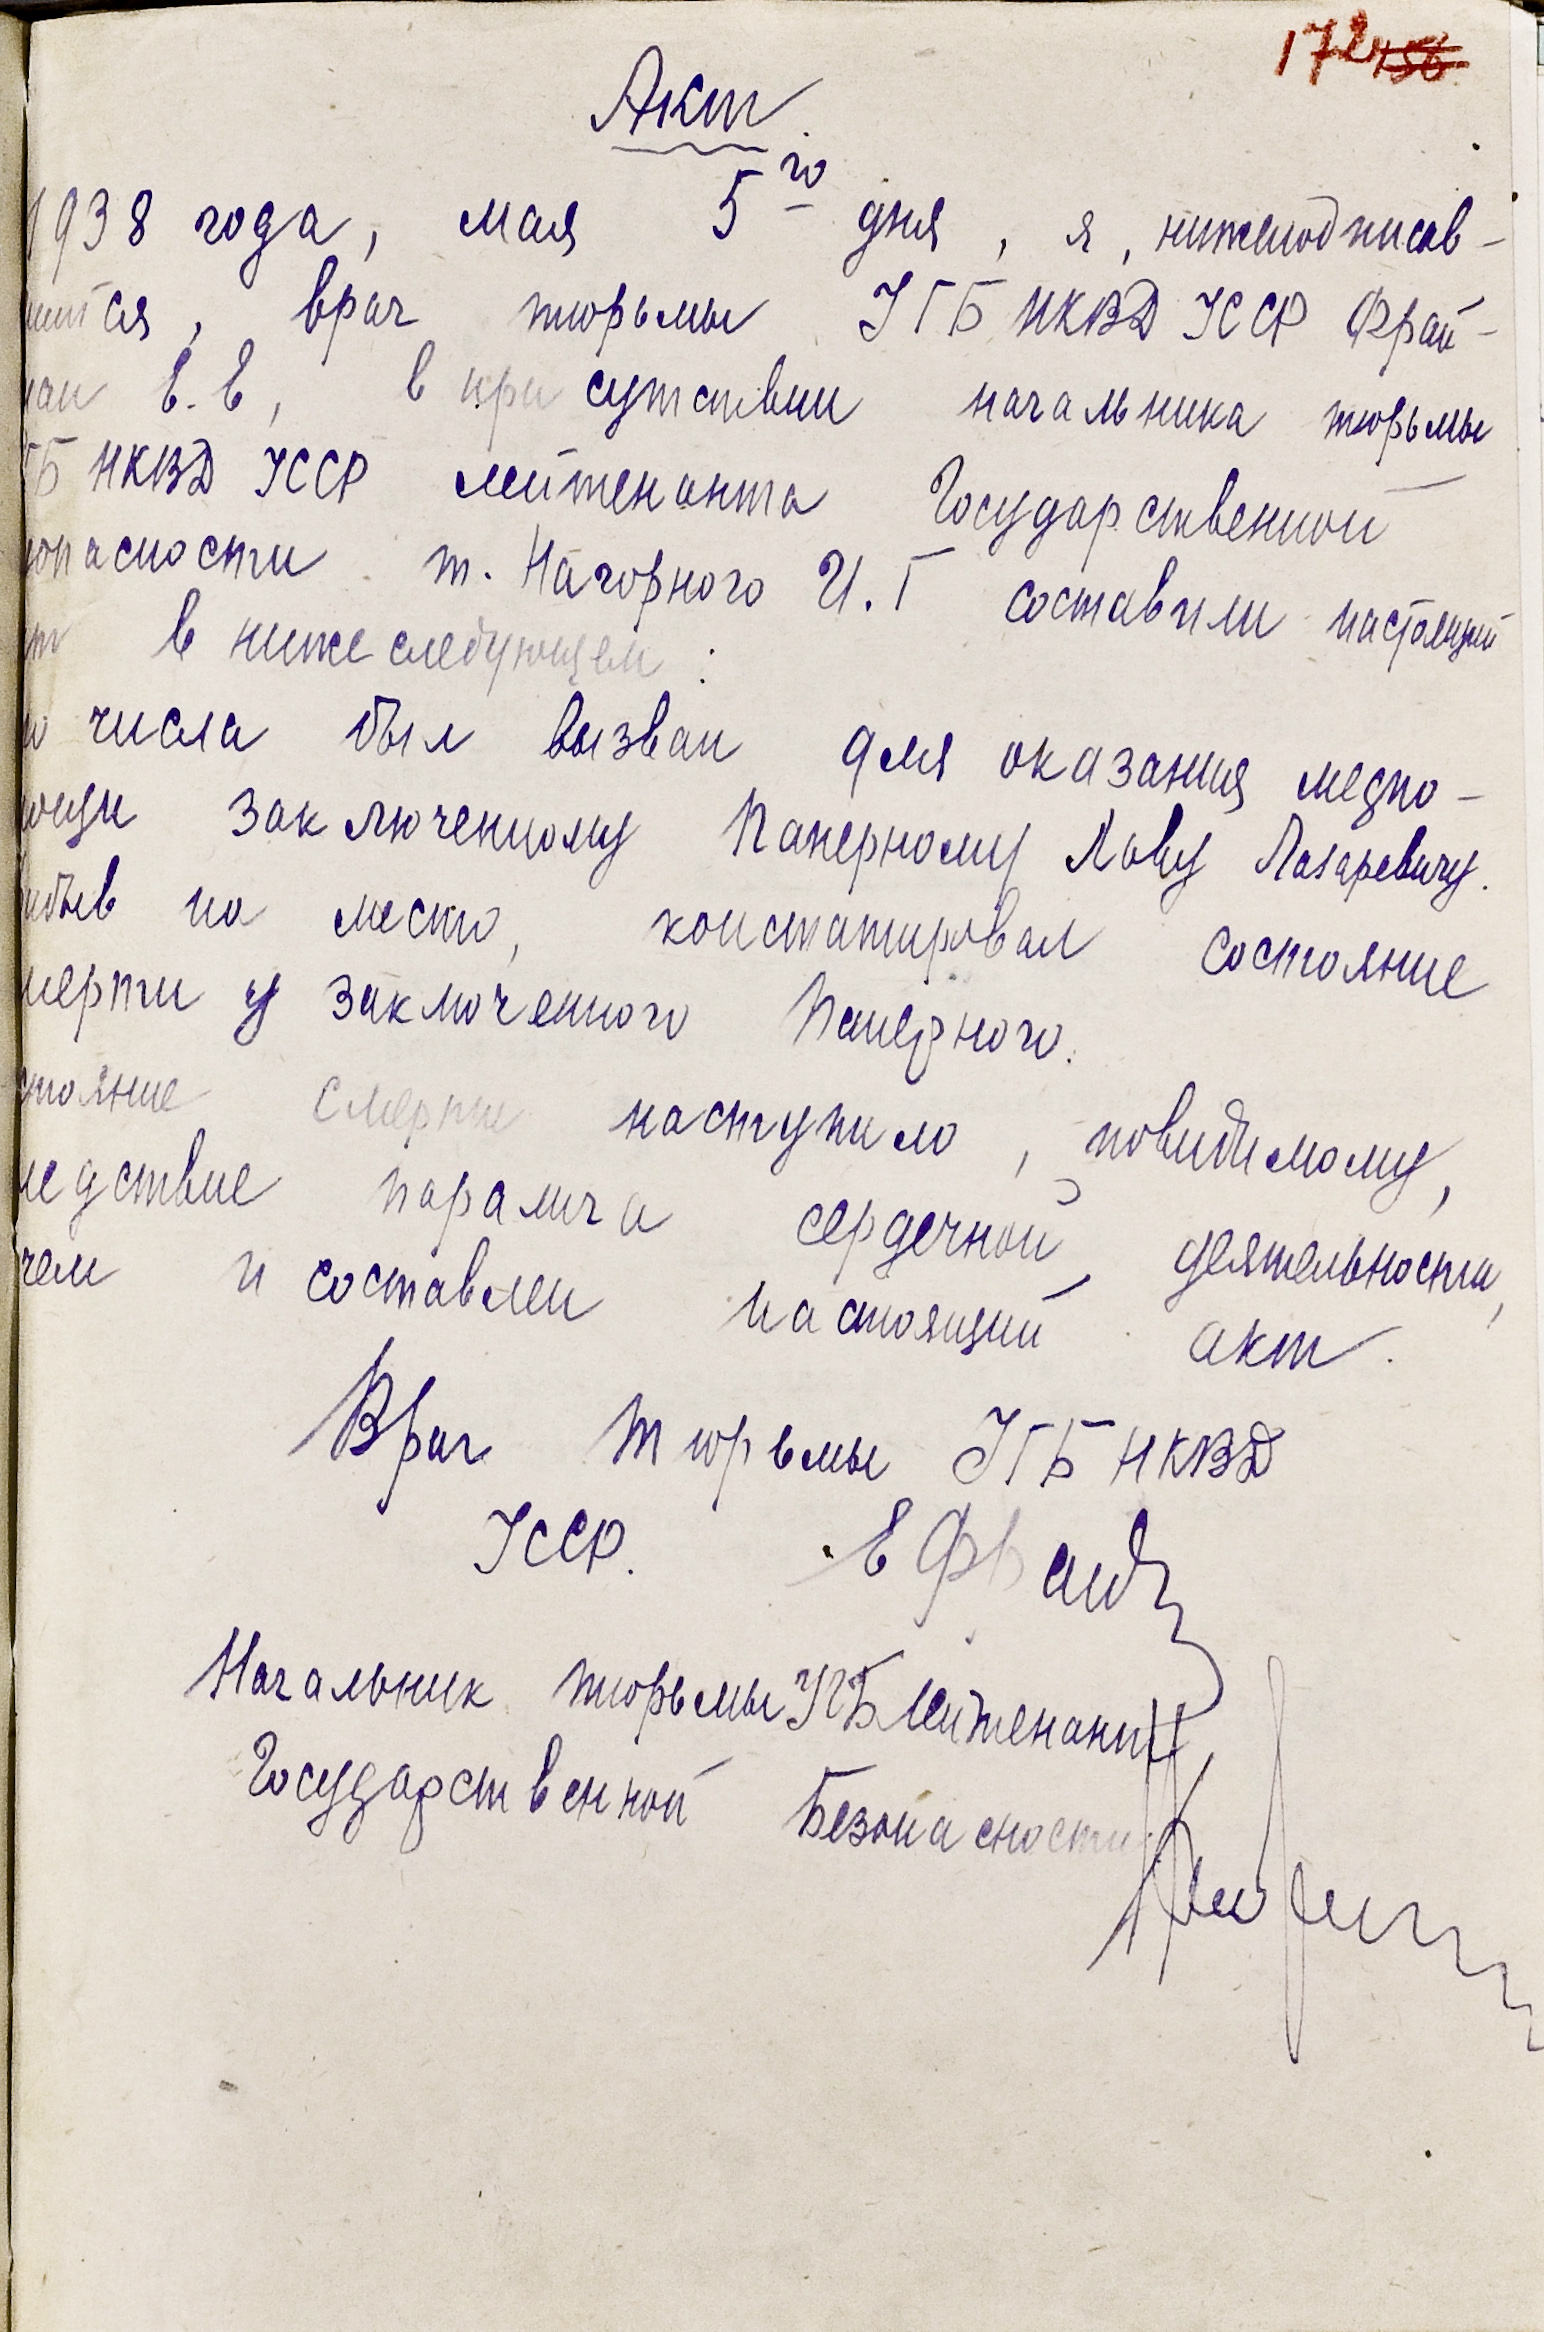 172 156
Акт
1938 года, мая 5го дня, я, нижеподписав-
шийся, врач тюрьмы УГБ НКВД УССР Фрай-
ман Е.Е, в присутствии начальника тюрьмы
ГБ НКВД УССР лейтенанта Государственной
опасности т. Нагорного И.Г составили настоящий
кт в нижеследующем:
го числа был вызван для оказания медпо-
мощи заключенному Паперному Льву Лазаревичу.
ибыв на место, констатировал состояние
мерти у заключенного Паперного.
стояние смерти наступило, повидимому,
ледствие паралича сердечной деятельности,
чем и составлен настоящий акт.
Врач тюрьмы УГБ НКВД
УССР. Е
Начальник тюрьмы УГБ лейтенант
Государственной Безопасности